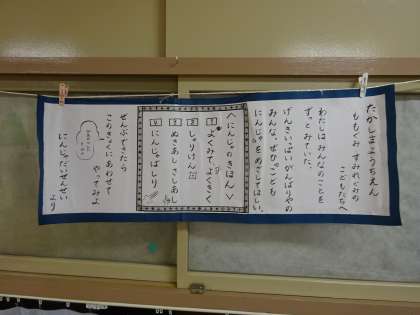 たかしまようちえん
ももぐみ すみれぐみの
こどもたちへ
わたしは、みんなのことを
ずっとみていた。
げんきいっぱい がんばりやの
みんな。ぜひとも
にんじゃを めざしてほしい。
＜にんじゃのきほん＞
1 よくみて、よくきく
2 しゅりけん
3 ぬきあし さしあし
4 にんじゃばしり
ぜんぶできたら
このきょくにあわせて
やってみよ
にんじゃだいせんせい
より